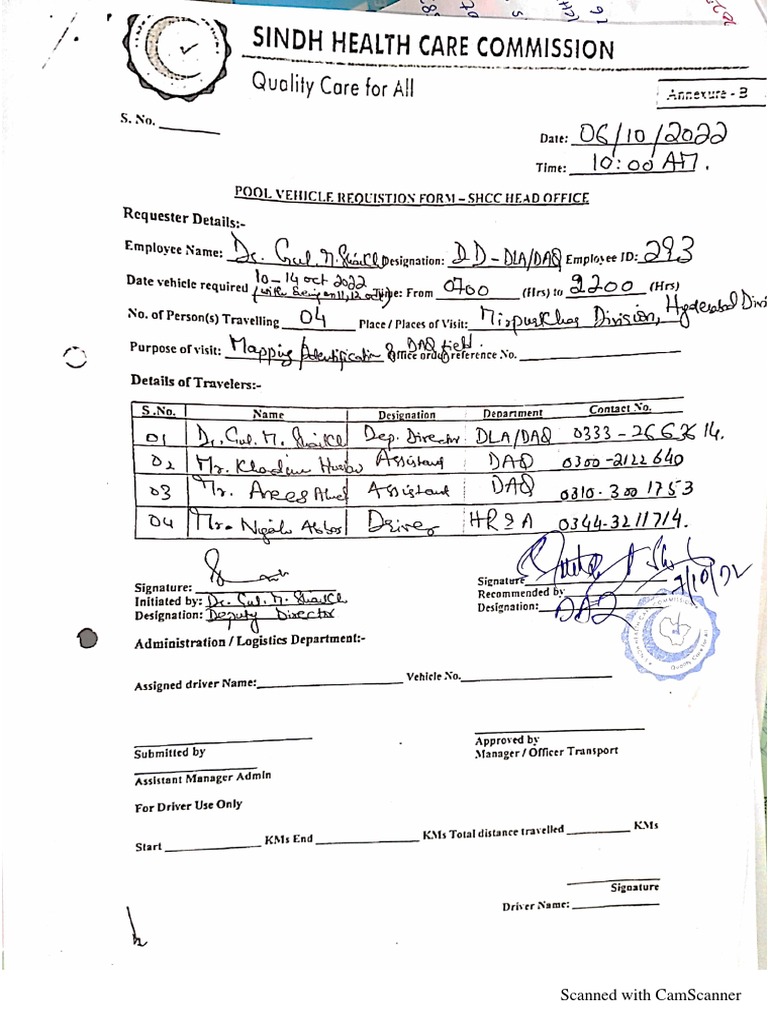 SINDH HEALTH CARE COMMISSION
Quality Care for All
Annexure - B
S. No.
Date: 06/10/2022
Time: 10:00 AM.
POOL VEHICLE REQUISTION FORM – SHCC HEAD OFFICE
Requester Details:-
Employee Name: Dr. Gul M. Shaikh Designation: DD - DLA/DAQ Employee ID: 293
10-14 oct 2022
Date vehicle required Time: From 0700 (Hrs) to 2200 (Hrs)
No. of Person(s) Travelling 04 Place / Places of Visit: Mirpurkhas Division, Hyderabad Divi
Purpose of visit: Mapping/Identification DAQ field. Office order/reference No.
Details of Travelers:-
S.No. Name Designation Department Contact No.
01 Dr. Gul. M. Shaikh Dep. Director DLA/DAQ 0333-2663614.
02 Mr. Khadim Assistant DAQ 0300-2122640
03 Mr. Assistant DAQ 0310-3001753
04 Mr. Abbas Driver HR & A 0344-3211714.
Signature:
Initiated by: Dr. Gul. M. Shaikh
Designation: Deputy Director
Signature
Recommended by 7/10/22
Designation: DAQ
HEALTH CARE COMMISSION
Quality Care for All
Administration / Logistics Department:-
Assigned driver Name: Vehicle No.
Submitted by
Assistant Manager Admin
Approved by
Manager / Officer Transport
For Driver Use Only
Start KMs End KMs Total distance travelled KMs
Signature
Driver Name:
Scanned with CamScanner